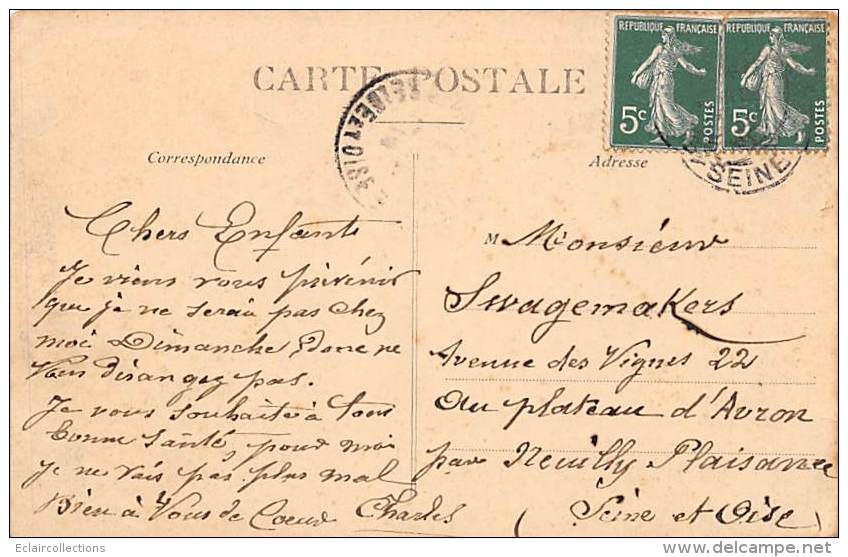 CARTE POSTALE
REPUBLIQUE FRANÇAISE
5c
POSTES
REPUBLIQUE FRANÇAISE
5c
POSTES
SEINE ET OISE
SEINE
Correspondance
Chers Enfants
Je viens vous prévenir
que je ne serai pas chez
moi Dimanche Donc ne
Vous dérangez pas.
Je vous souhaite à tous
bonne santé pour moi
je ne vais pas plus mal
Bien à Vous de Coeur Charles
Adresse
M Monsieur
Swagemakers
Avenue des Vignes 22
au plateau d'Avron
par Neuilly Plaisance
(Seine et Oise)
Eclaircollections
http://www.delcampe.net